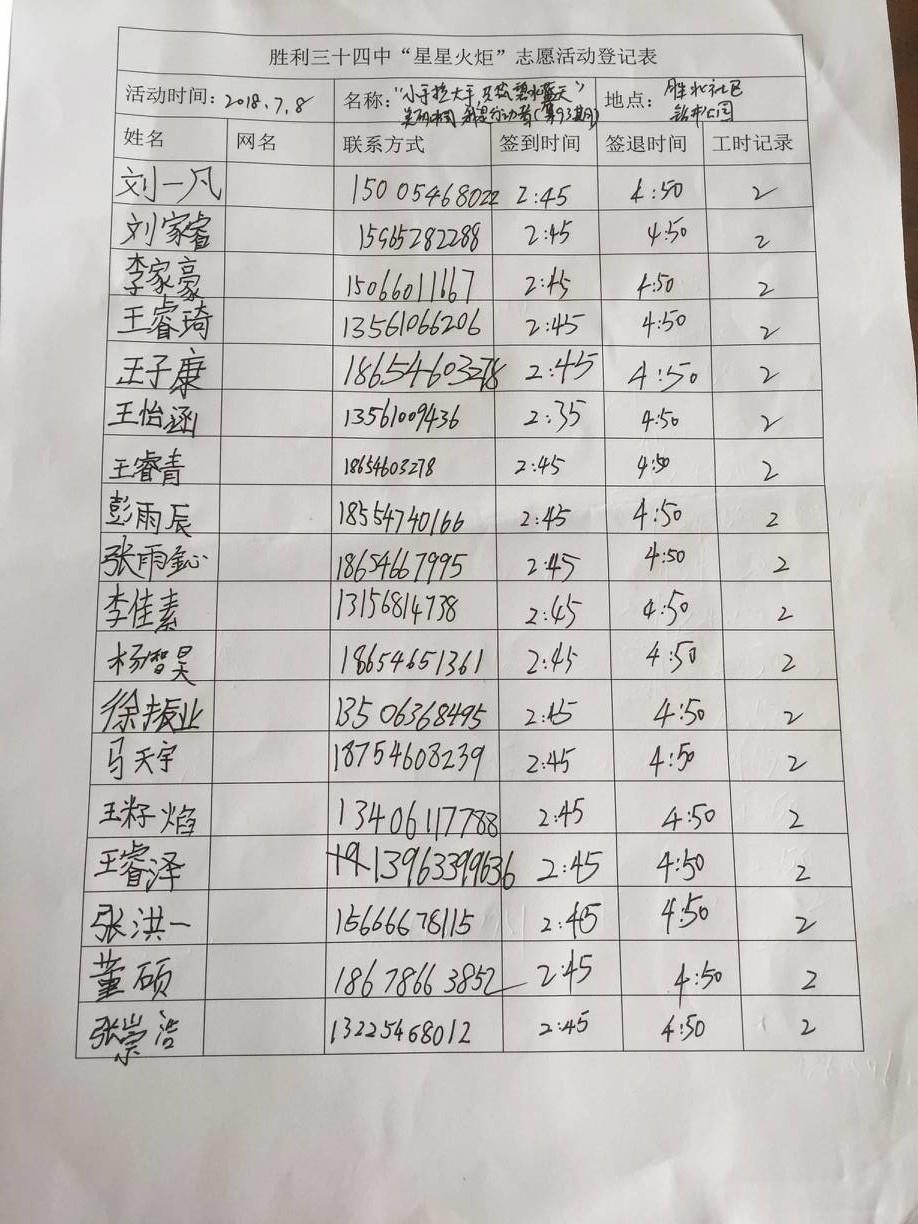 胜利三十四中“星星火炬”志愿活动登记表
活动时间：2018.7.8 名称：“小手拉大手，共筑碧水蓝天” 地点：胜北社区
美丽中国 我是行动者（第93期） 钻井公园
姓名 网名 联系方式 签到时间 签退时间 工时记录
刘一凡 15005468022 2:45 4:50 2
刘家睿 15965282288 2:45 4:50 2
李家豪 15066011667 2:45 4:50 2
王睿琦 13561066206 2:45 4:50 2
王子康 18654603278 2:45 4:50 2
王怡涵 13561009436 2:35 4:50 2
王睿青 18654603278 2:45 4:50 2
彭雨辰 18554740166 2:45 4:50 2
张雨鈊 18654667995 2:45 4:50 2
李佳素 13156814738 2:45 4:50 2
杨智昊 18654651361 2:45 4:50 2
徐振业 13506368495 2:45 4:50 2
马天宇 18754608239 2:45 4:50 2
王籽焰 13406117788 2:45 4:50 2
王睿泽 13963399636 2:45 4:50 2
张洪一 15666678115 2:45 4:50 2
董硕 18678663852 2:45 4:50 2
张崇浩 13225468012 2:45 4:50 2